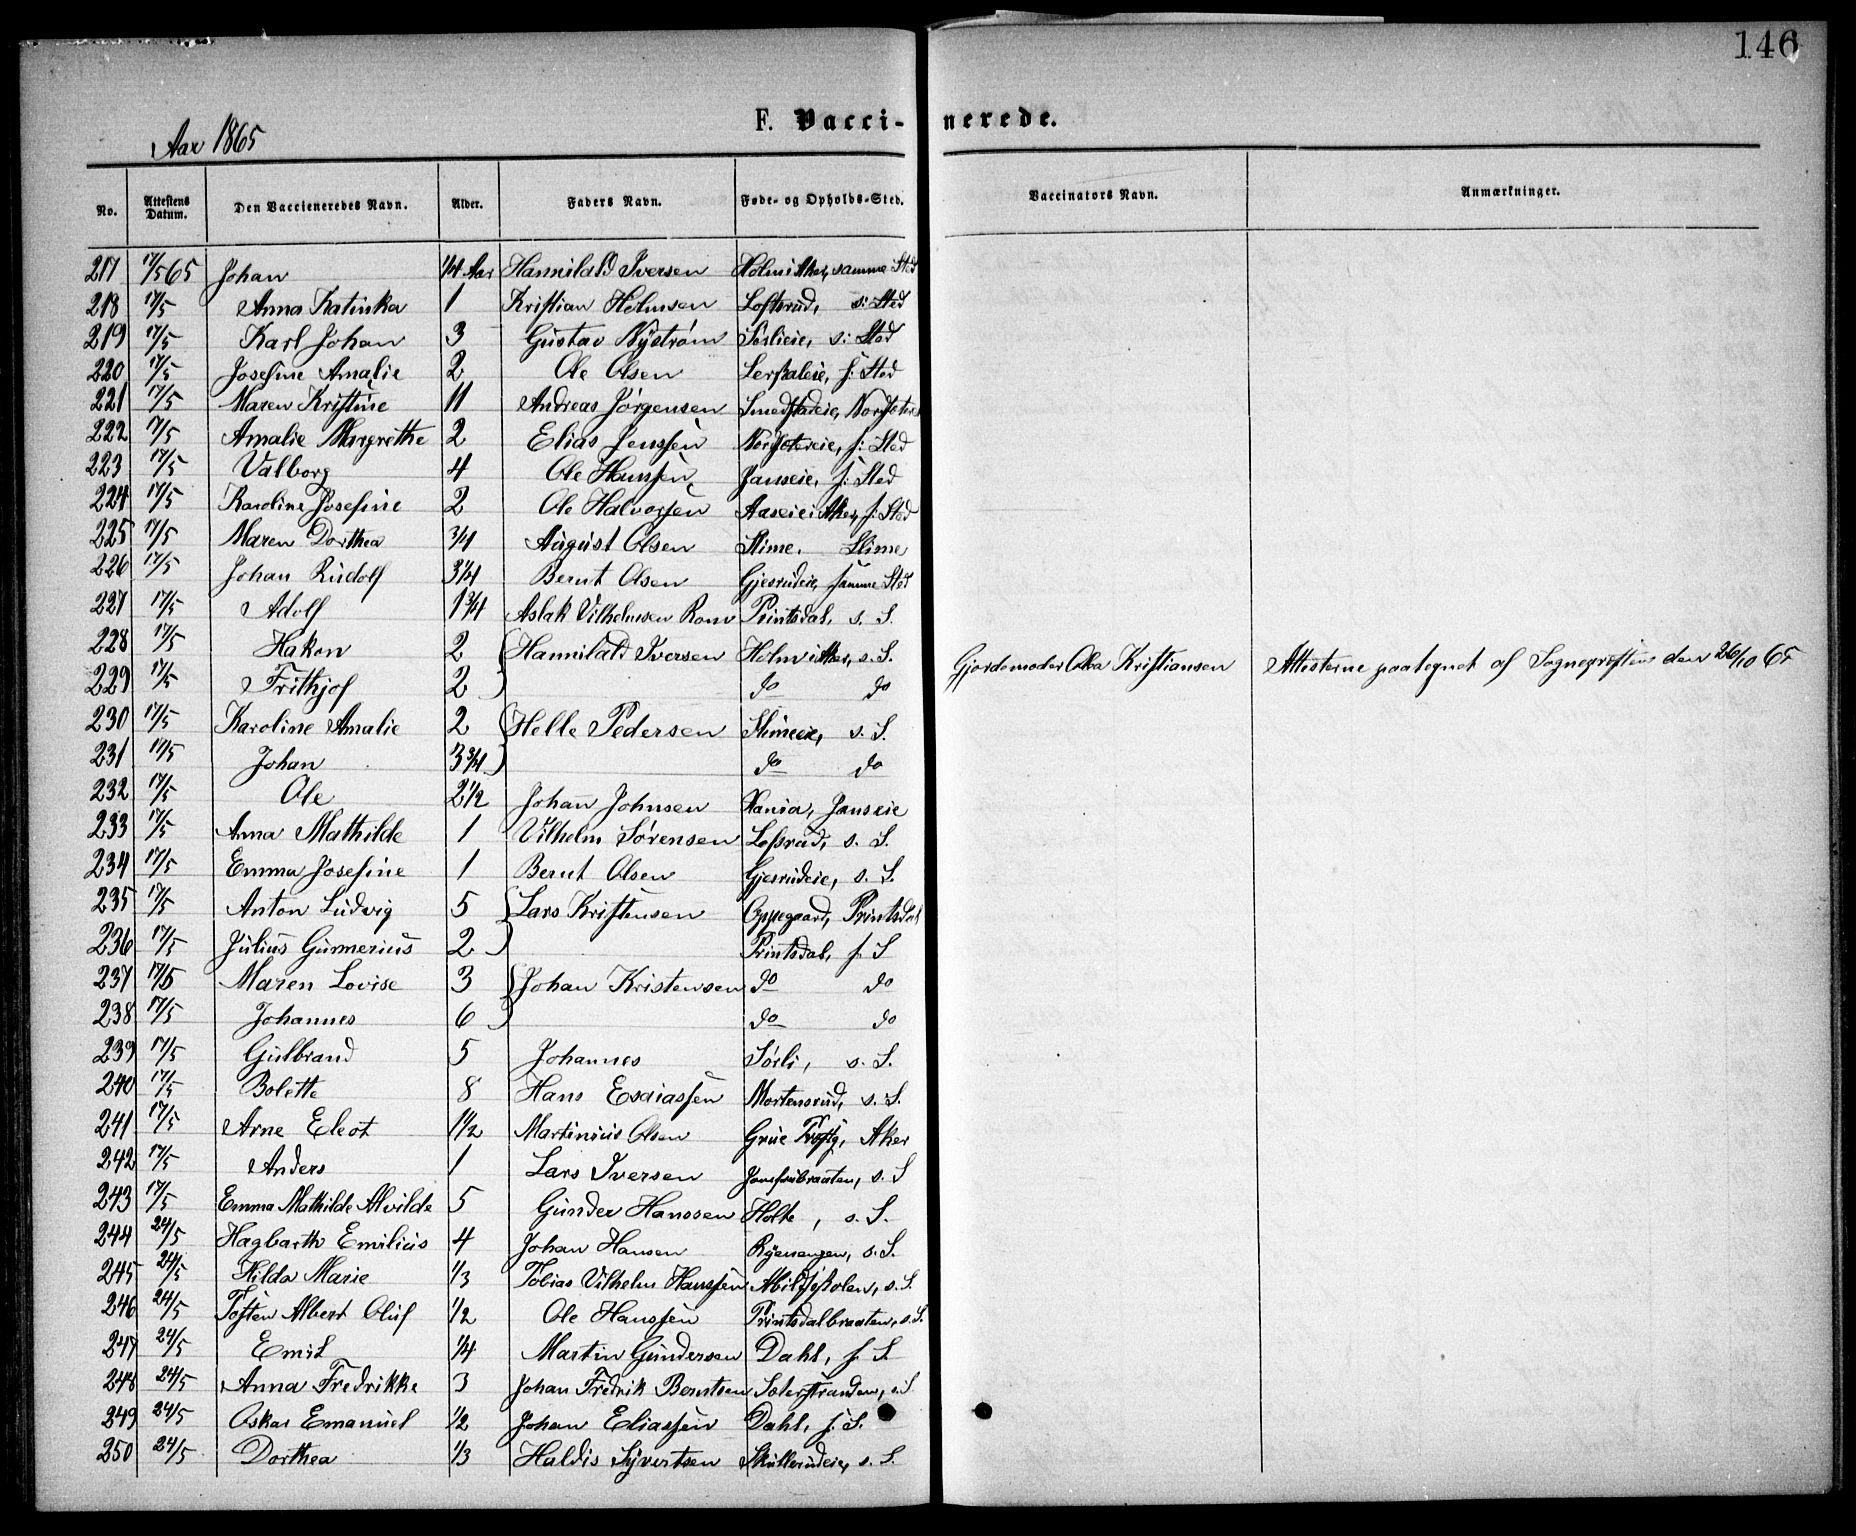 146
F. Vacci- nerede.
Aar 1865
No. Attestens Datum. Den Vaccieneredes Navn. Alder. Faders Navn. Føde- og Opholds-Sted. Vaccinators Navn. Anmærkninger.
217 17/5 65 Johan 1/4 Aar Hannibald Iversen Holm i Aker, samme Sted
218 17/5 Anna Katinka 1 Kristian Helmsen Lofsrud, s: Sted
219 17/5 Karl Johan 3 Gustav Nystrøm Sørlieie, s: Sted
220 17/5 Josefine Amalie 2 Ole Olsen s: Sted
221 17/5 Maren Kristine 11 Andreas Jørgensen
222 17/5 Amalie Margrethe 2 Elias Jenssen s: Sted
223 17/5 Valborg 4 Ole Hanssen Janseie, s: Sted
224 17/5 Karoline Josefine 2 Ole Halvorsen Aaseie i Aker, s: Sted
225 17/5 Maren Dorthea 3/4 August Olsen Slime. Slime
226 17/5 Johan Rudolf 3 1/4 Bernt Olsen Gjersrudeie, samme Sted
227 17/5 Adolf 1 3/4 Aslak Vilhelmsen Rom Printsdal, s. S.
228 17/5 Hakon 2 Hannibald Iversen Holm i Aker, s. S. Gjordemoder Olea Kristiansen Attesterne paategnet af Sognepresten den 26/10 65
229 17/5 Frithjof 2 do do
230 17/5 Karoline Amalie 2 Helle Pedersen Slimeeie, s. S.
231 17/5 Johan 3 3/4 do do
232 17/5 Ole 2 1/2 Johan Johnsen Xania, Janseie
233 17/5 Anna Mathilde 1 Vilhelm Sørensen Lofsrud, s. S.
234 17/5 Emma Josefine 1 Bernt Olsen Gjersrudeie, s. S.
235 17/5 Anton Ludvig 5 Lars Kristensen Oppegaard, Printsdal
236 17/5 Julius Gunnerius 2 Printsdal, s. S
237 17/5 Maren Lovise 3 Johan Kristensen do do
238 17/5 Johannes 6 do do
239 17/5 Gulbrand 5 Johannes Sørli, s. S.
240 17/5 Bolette 8 Hans Esaiassen Mortensrud, s. S.
241 17/5 Arne Eleot 1 1/2 Martinius Olsen Grue Prstg, Aker
242 17/5 Anders 1 Lars Iversen Jonsrudbraaten, s. S
243 17/5 Emma Mathilde Alvilde 5 Gunder Hanssen Holte, s. S.
244 24/5 Hagbarth Emilius 4 Johan Hansen Ryenengen, s. S.
245 24/5 Hilda Marie 1/3 Tobias Vilhelm Hanssen Abildsøskolen, s. S.
246 24/5 Tosten Albert Oluf 1/2 Ole Hanssen Printsdalbraaten, s. S.
247 24/5 Emil 1/4 Martin Gundersen Dahl, s. S.
248 24/5 Anna Fredrikke 3 Johan Fredrik Berntsen Sæterstranden, s. S
249 24/5 Oskar Emanuel 1/2 Johan Eliassen Dahl, s. S.
250 24/5 Dorthea 1/3 Haldis Syvertsen Skullerudeie, s. S.